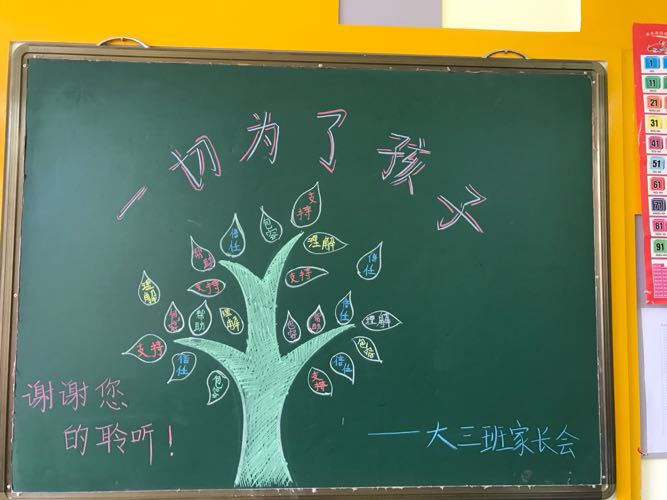 一切为了孩子
支持
包容
信任
帮助
理解
信任
支持
支持
理解
包容
帮助
理解
包容
帮助
信任
理解
支持
包容
信任
信任
支持
包容
谢谢您
的聆听！
——大三班家长会
1
11
21
31
41
51
61
71
81
91